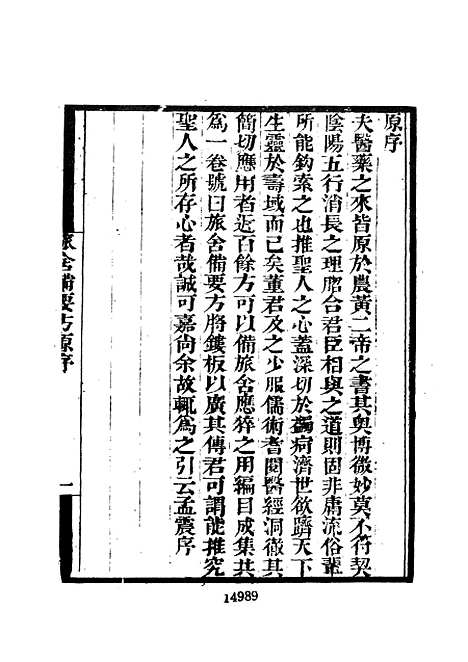 原序
夫醫藥之來皆原於農黃二帝之書其奥博微妙莫不符契
陰陽五行消長之理脗合君臣相與之道則固非庸流俗輩
所能鈎索之也推聖人之心蓋深切於蠲疴濟世欲躋天下
生靈於壽域而已矣董君及之少服儒術耆閱醫經洞徹其
簡切應用者近百餘方可以備旅舍應猝之用編目成集共
為一卷號曰旅舍備要方將鏤板以廣其傳君可謂能推究
聖人之所存心者哉誠可嘉尚余故輒為之引云孟震序
旅舍備要方原序
一
14989